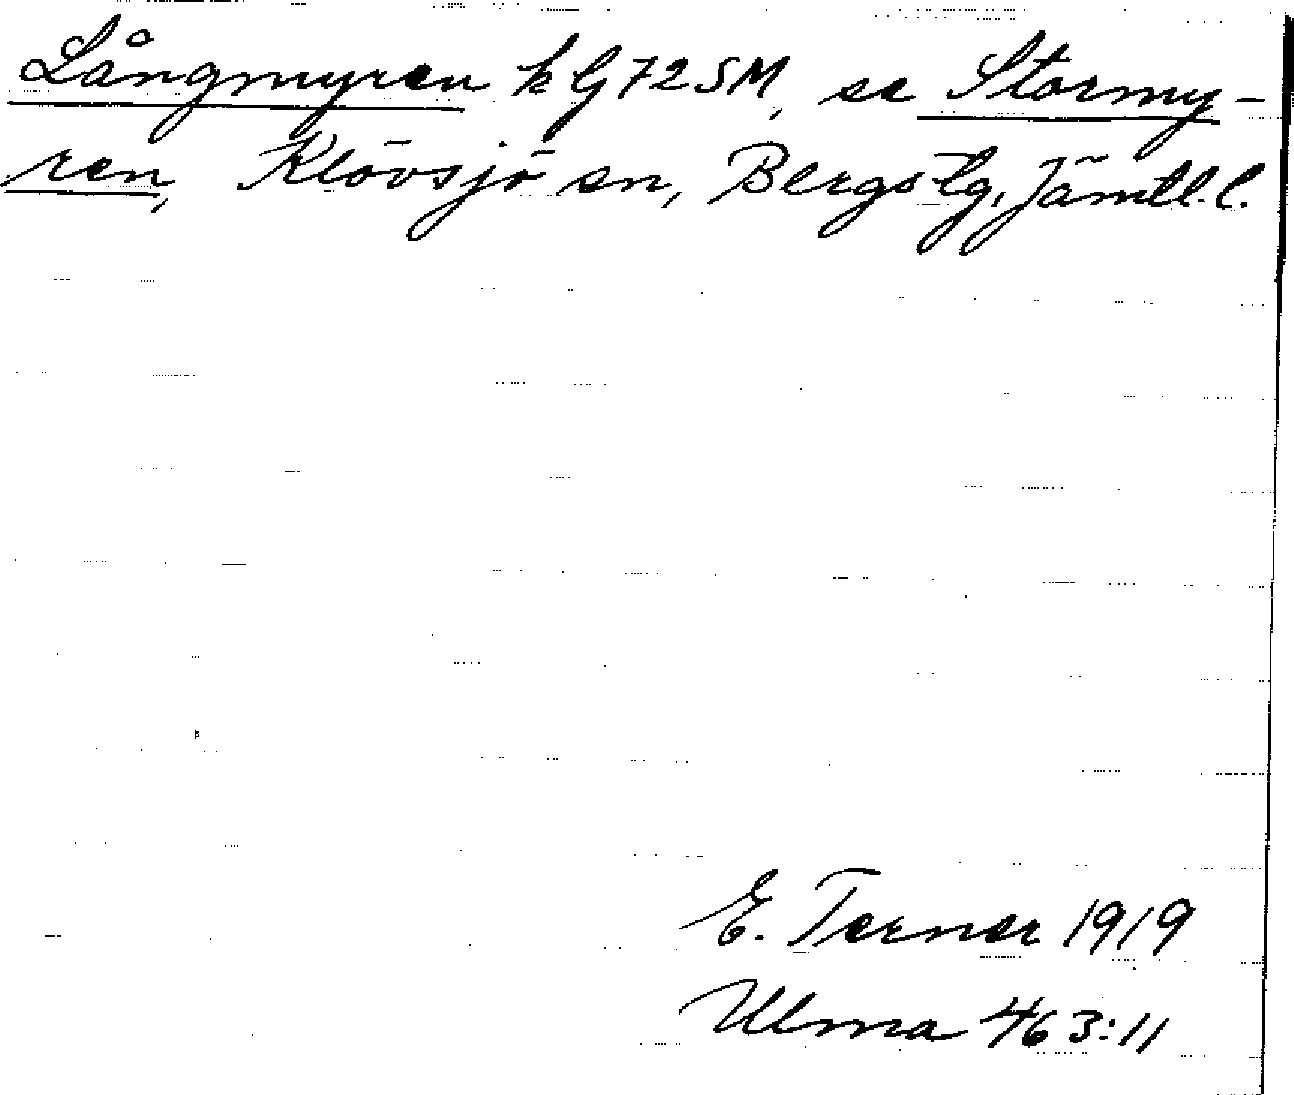 Långmyren k G 72 SM, se Stormy-
ren, Klövsjö sn, Bergs tg, Jämtl. l.
E. Terner 1919
Ulma 463:11